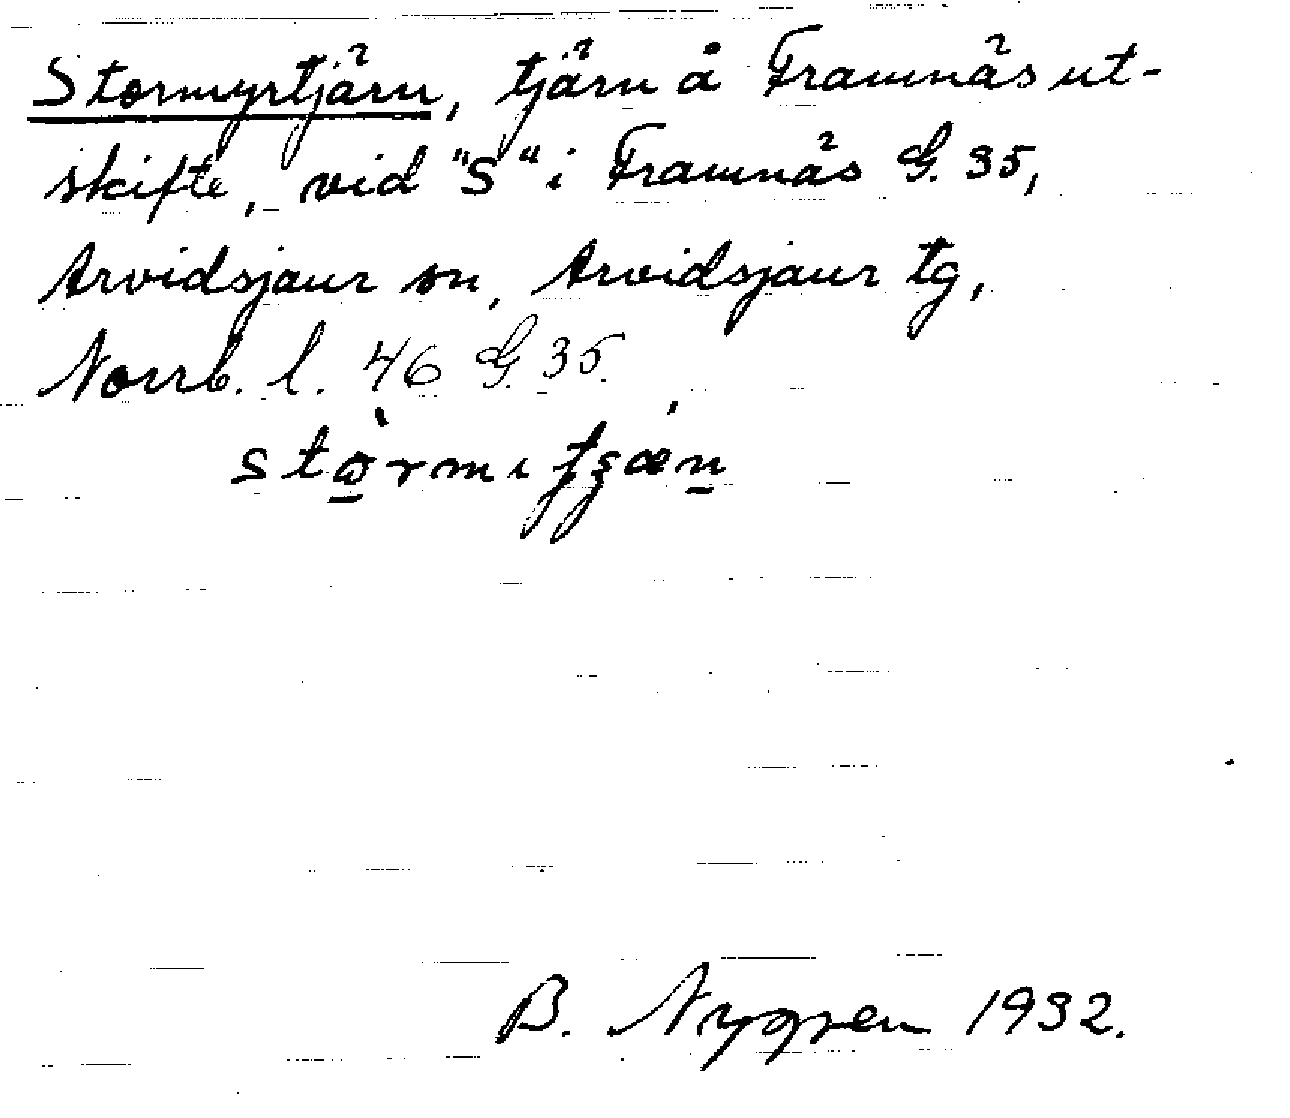 Stormyrtjärn, tjärn å Framnäs ut-
skifte, vid "S" i Framnäs G. 35,
Arvidsjaur sn, Arvidsjaur tg,
Norrb. l. 46 G. 35.
B. Nygren 1932.